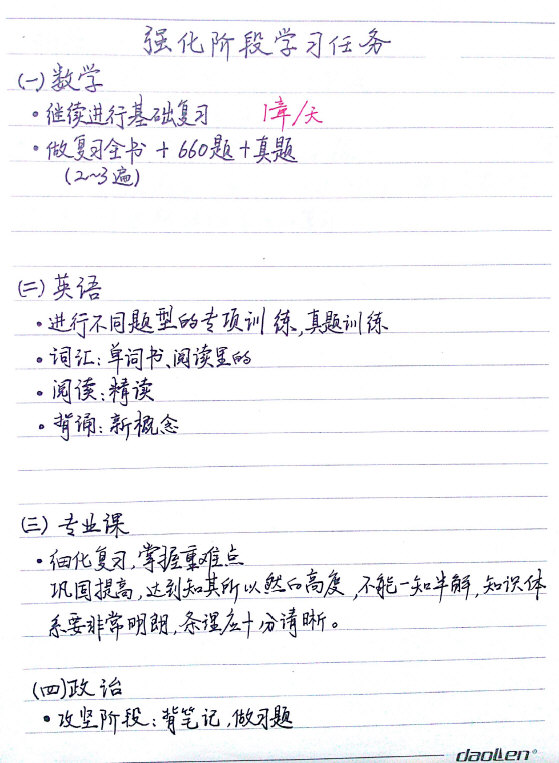 强化阶段学习任务
(一)数学
·继续进行基础复习 1章/天
·做复习全书 + 660题 + 真题
(2~3遍)
(二)英语
·进行不同题型的专项训练,真题训练
·词汇:单词书、阅读里的
·阅读:精读
·背诵:新概念
(三)专业课
·细化复习,掌握重难点
巩固提高,达到知其所以然的高度,不能一知半解,知识体
系要非常明朗,条理应十分清晰。
(四)政治
·攻坚阶段:背笔记,做习题
daolen®